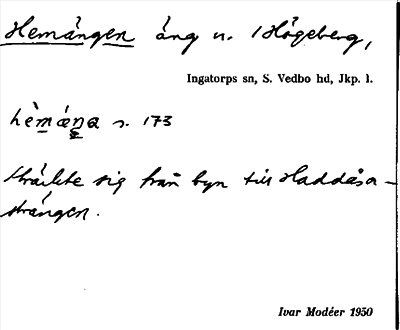 Hemängen äng n. Högeberg,
Ingatorps sn, S. Vedbo hd, Jkp. l.
hèmæŋa s. 173
sträckte sig från byn till Haddåsa-
strängen.
Ivar Modéer 1930